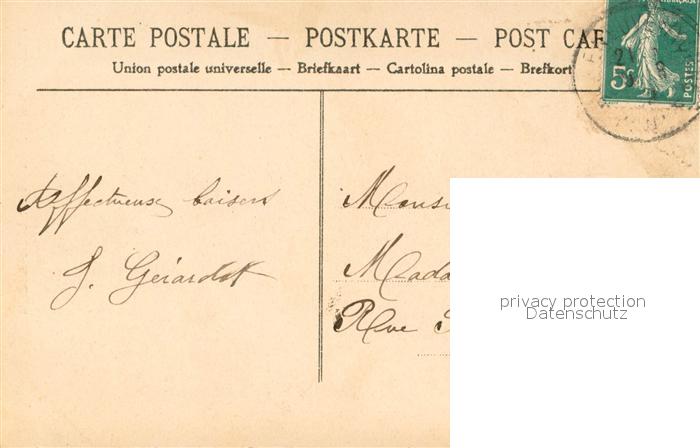 CARTE POSTALE — POSTKARTE — POST CAR
Union postale universelle — Briefkaart — Cartolina postale — Brefkort
5c
POSTES
Affectueux baisers
Monsi
Mada
Rue
privacy protection
Datenschutz